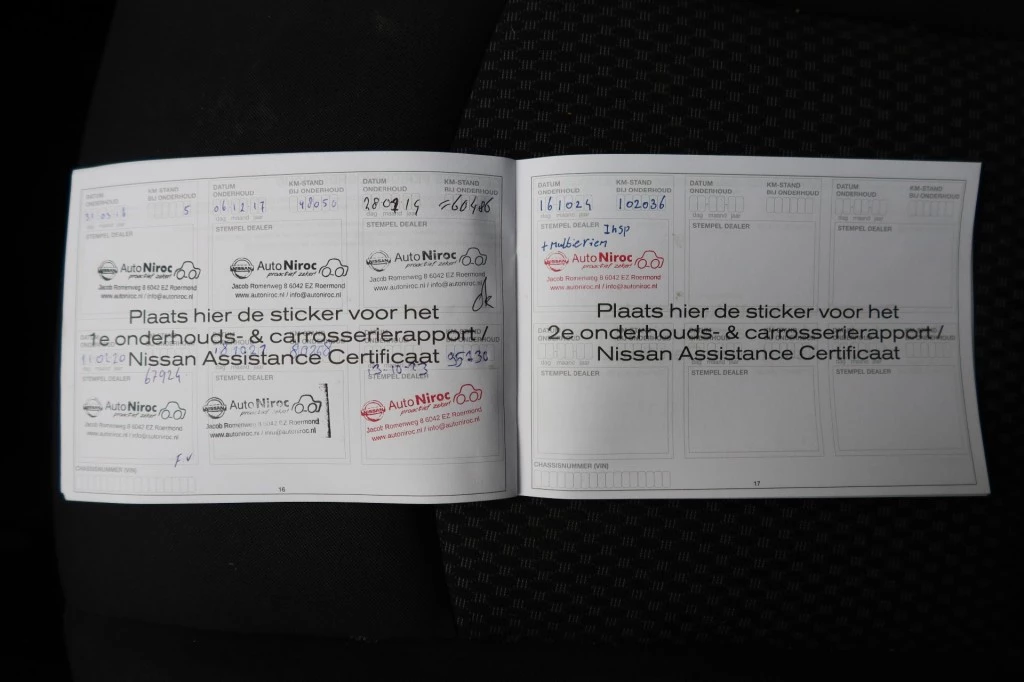 DATUM ONDERHOUD KM-STAND BIJ ONDERHOUD
5
dag maand jaar
STEMPEL DEALER
NISSAN AutoNiroc
proactief zeker!
Jacob Romenweg 8 6042 EZ Roermond
www.autoniroc.nl / info@autoniroc.nl
DATUM ONDERHOUD KM-STAND BIJ ONDERHOUD
48050
dag maand jaar
STEMPEL DEALER
NISSAN AutoNiroc
proactief zeker!
Jacob Romenweg 8 6042 EZ Roermond
www.autoniroc.nl / info@autoniroc.nl
DATUM ONDERHOUD KM-STAND BIJ ONDERHOUD
dag maand jaar
STEMPEL DEALER
NISSAN AutoNiroc
proactief zeker!
Jacob Romenweg 8 6042 EZ Roermond
www.autoniroc.nl / info@autoniroc.nl
Ok
Plaats hier de sticker voor het
1e onderhouds- & carrosserierapport /
Nissan Assistance Certificaat
67924
STEMPEL DEALER
NISSAN AutoNiroc
proactief zeker!
Jacob Romenweg 8 6042 EZ Roermond
www.autoniroc.nl / info@autoniroc.nl
STEMPEL DEALER
NISSAN AutoNiroc
proactief zeker!
Jacob Romenweg 8 6042 EZ Roermond
www.autoniroc.nl / info@autoniroc.nl
95230
13-10-23
STEMPEL DEALER
NISSAN AutoNiroc
proactief zeker!
Jacob Romenweg 8 6042 EZ Roermond
www.autoniroc.nl / info@autoniroc.nl
CHASSISNUMMER (VIN)
16
DATUM ONDERHOUD KM-STAND BIJ ONDERHOUD
161024 102036
dag maand jaar
STEMPEL DEALER
Insp
NISSAN AutoNiroc
proactief zeker!
Jacob Romenweg 8 6042 EZ Roermond
www.autoniroc.nl / info@autoniroc.nl
DATUM ONDERHOUD KM-STAND BIJ ONDERHOUD
dag maand jaar
STEMPEL DEALER
DATUM ONDERHOUD KM-STAND BIJ ONDERHOUD
dag maand jaar
STEMPEL DEALER
Plaats hier de sticker voor het
2e onderhouds- & carrosserierapport /
Nissan Assistance Certificaat
STEMPEL DEALER
STEMPEL DEALER
STEMPEL DEALER
CHASSISNUMMER (VIN)
17